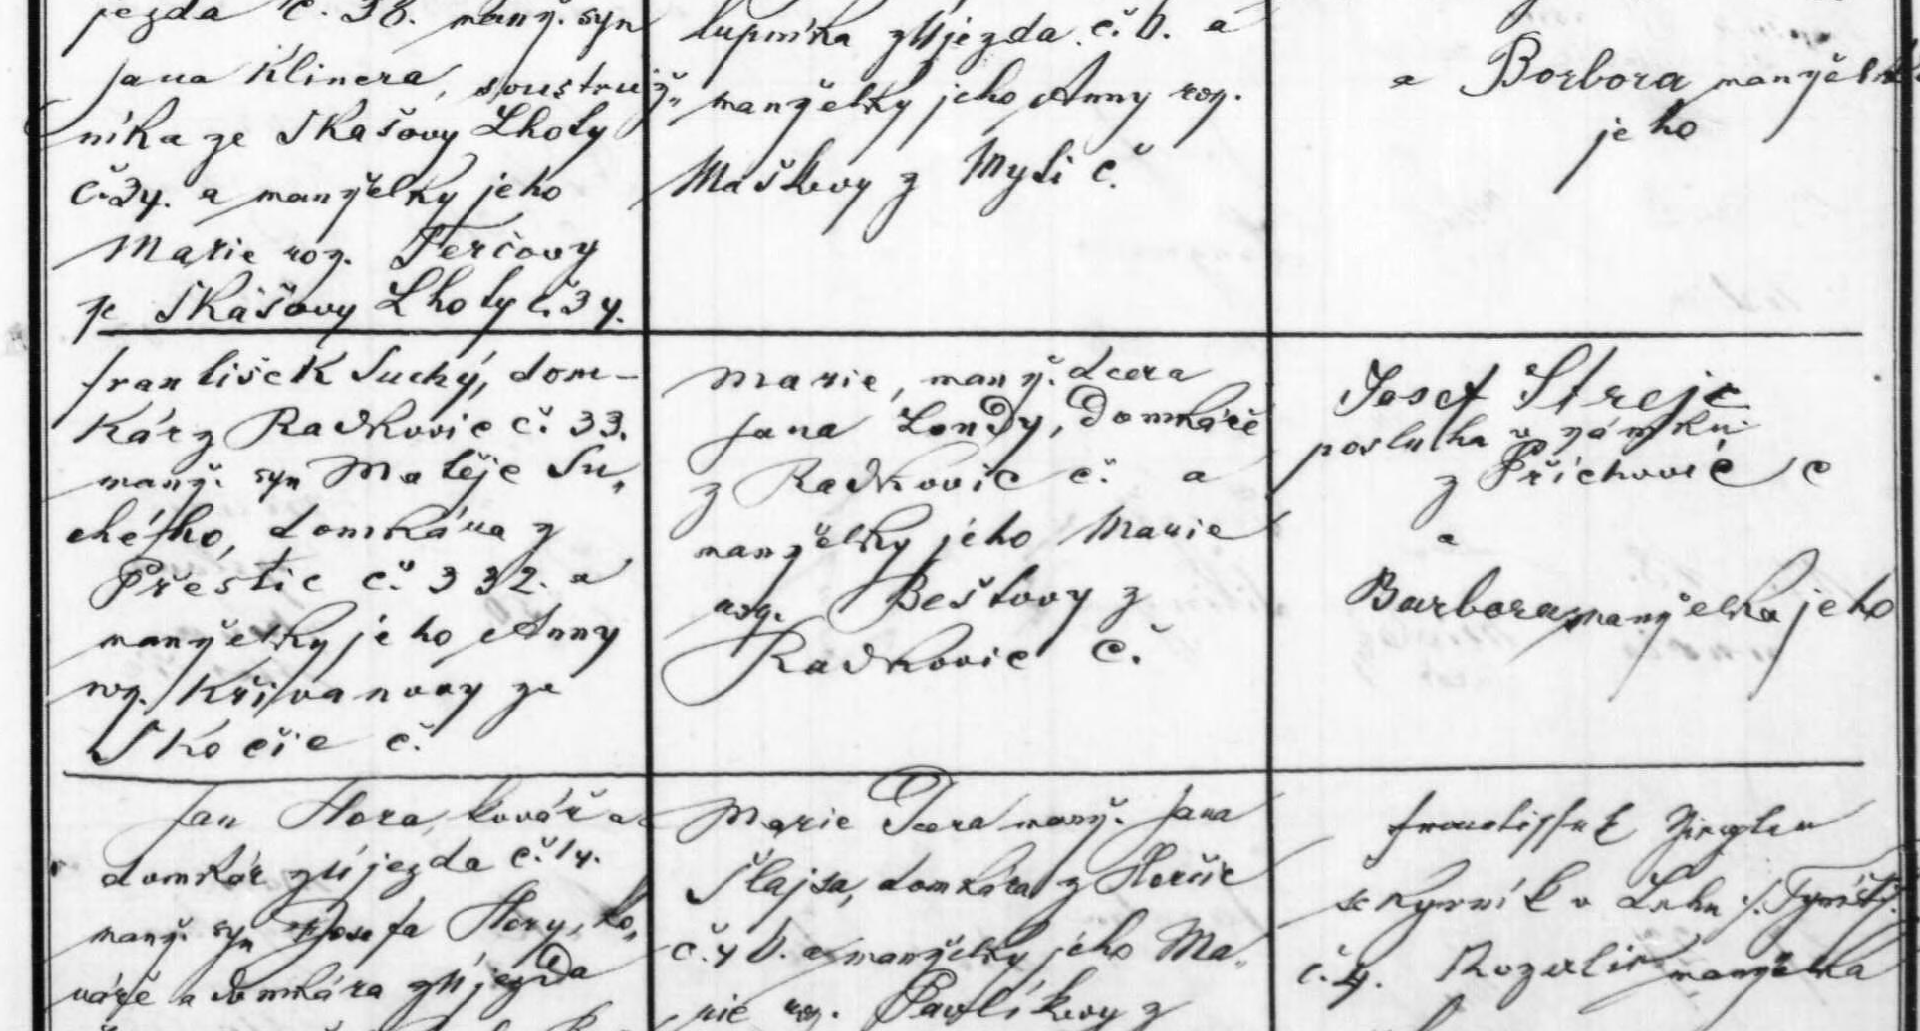 jezda č. 38. manž. syn
Jana Klinera, soustruž„
níka ze Skašovy Lhoty
č. 34. a manželky jeho
Marie roz. Terčovy
ze Skašovy Lhoty č. 34.
lupníka z Újezda. č. 6. a
manželky jeho Anny roz.
Maškovy z Mytí č.
a Borbora manželka
jeho
František Suchý, dom-
kář z Radkovic č. 33.
manž. syn Matěje Su„
chého, domkára z
Přestic č. 332. a
manželky jeho Anny
roz. Křivanovy ze
Skočic č.
Marie, manž. dcera
Jana Londy, Domkáře
z Radkovic č. a
manželky jeho Marie
roz. Beštovy z
Radkovic č.
Josef Strejc
posluha v zámku
z Příchovic č
a
Barbora manželka jeho
Jan Hora, kovář a
domkář z Újezda č. 14.
manž. syn Josefa Hory, ko„
váře a domkára z Újezda
Marie Dcera manž. Jana
Šlajsa, domkára z Horšic
č. 46. a manželky jeho Ma„
rie roz. Pavlíkovy z
František Zingler
v
č. 4. Rozalie manželka